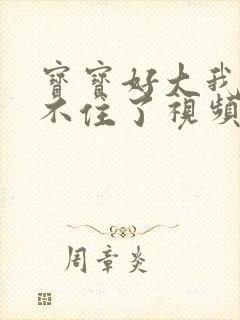 寶寶好大我
不住了視頻
周章炎